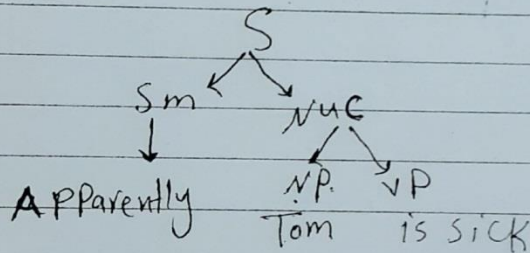 S
Sm NuC
Apparently NP. VP
Tom is sick